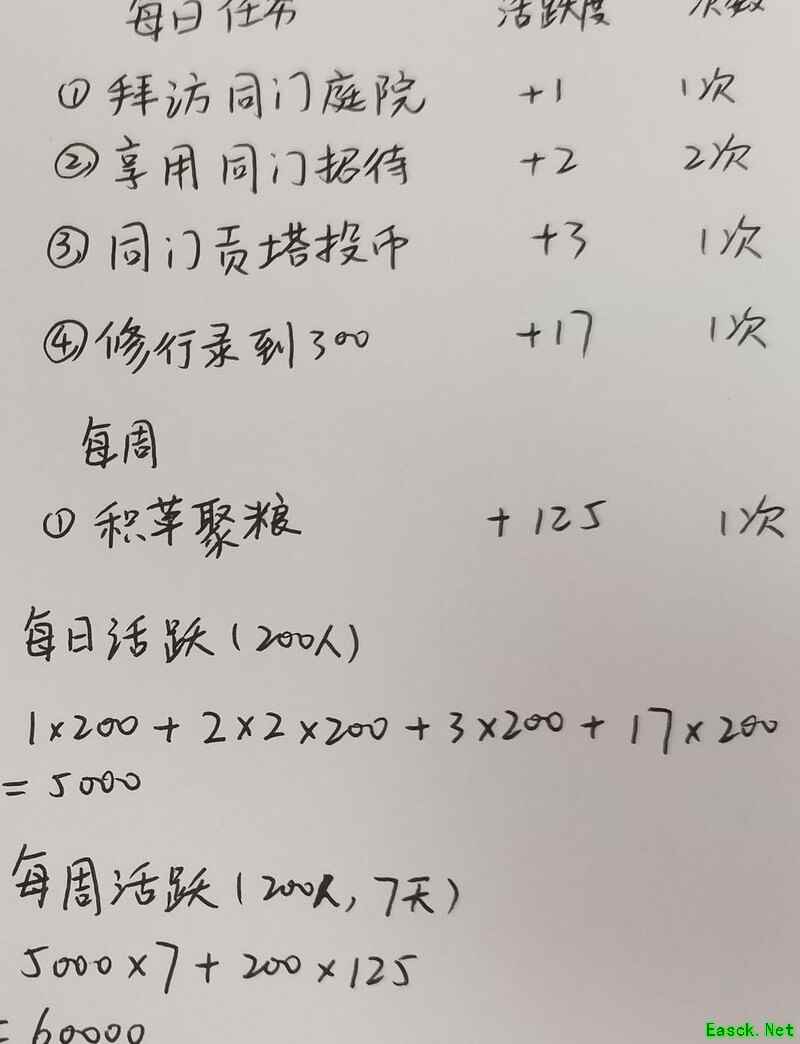 每日任务 活跃度 次数
① 拜访同门庭院 +1 1次
② 享用同门招待 +2 2次
③ 同门贡塔投币 +3 1次
④ 修行录到300 +17 1次
每周
① 积草聚粮 +125 1次
每日活跃(200人)
1×200+2×2×200+3×200+17×200
=5000
每周活跃(200人,7天)
5000×7+200×125
=60000
Easck.Net